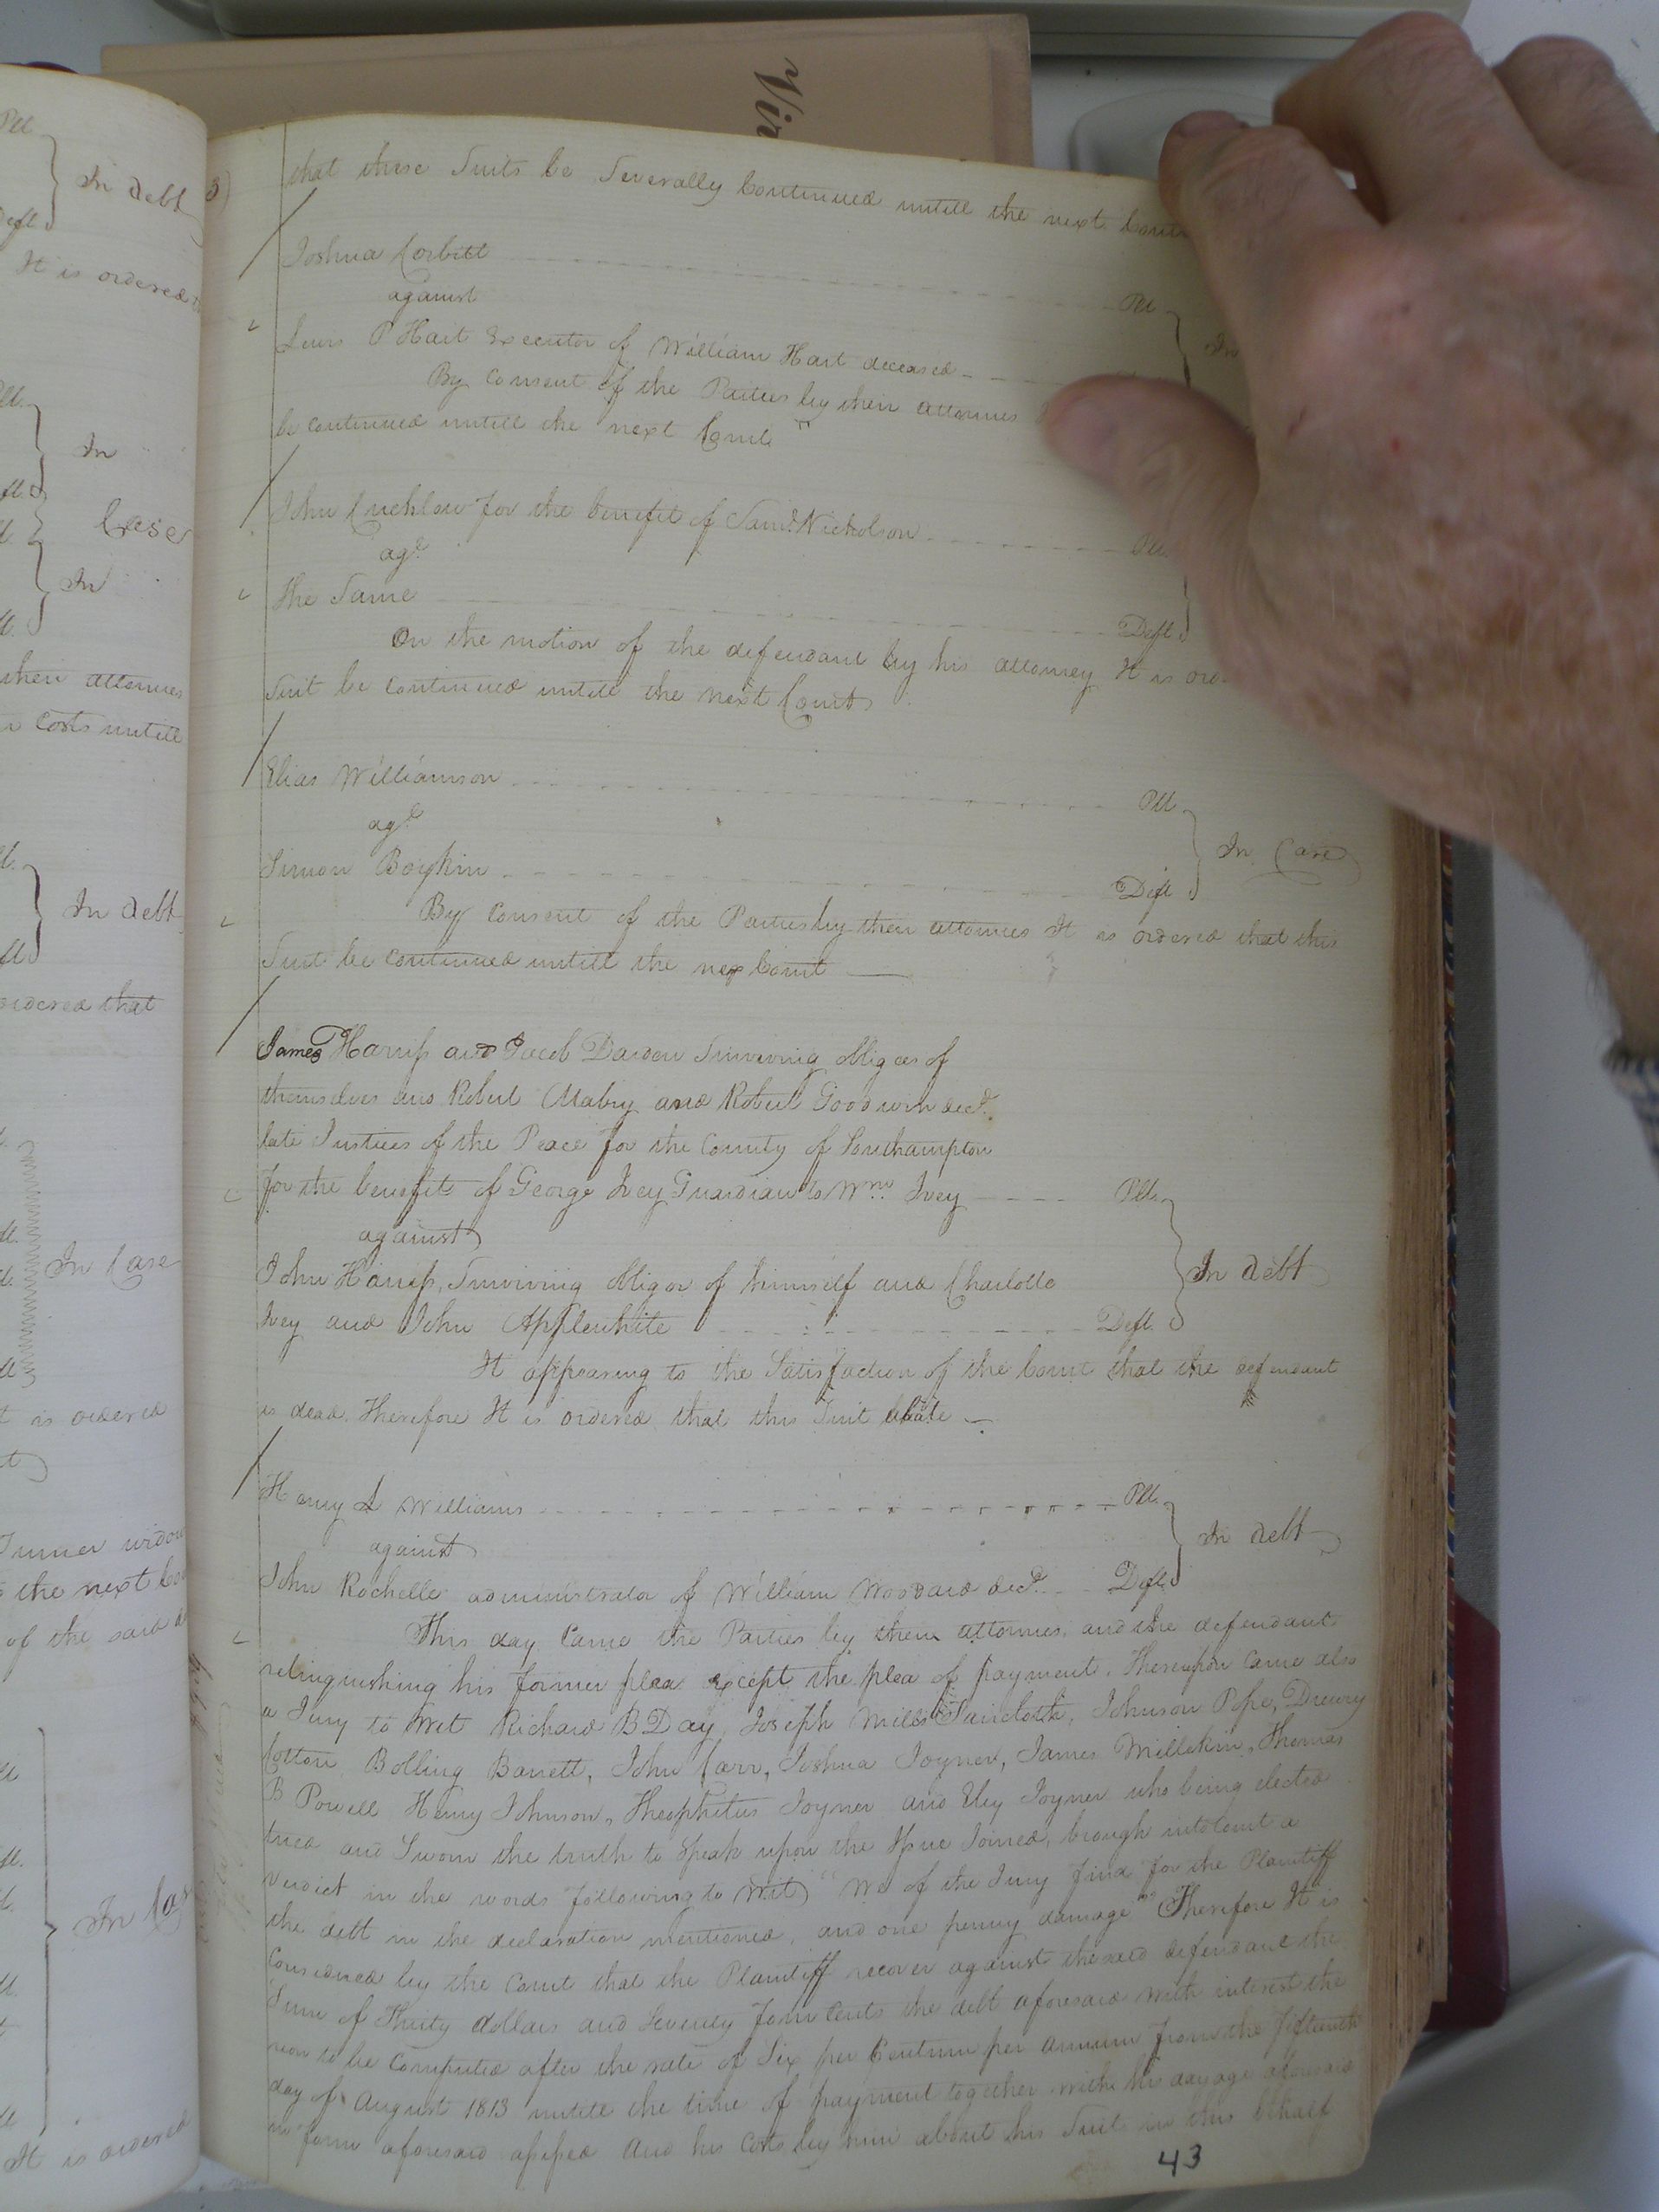 Vir
Pll
In debt
Deft
It is ordered
In
Case
In
their attornies
costs untill
In debt
ordered that
In Case
It is ordered
the next
of the said
It is ordered
that these Suits be Severally Continued untill the next
Joshua Corbitt Pll
against
Lewis P Hart Executor of William Hart deceased In
By consent of the Parties by their attornies
be continued untill the next Court
John for the benefit of Saml. Nicholson Pll
agt.
The Same Deft
On the motion of the defendant by his attorney It is
Suit be continued untill the next Court
Elias Williamson Pll
agt.
In Case
Simon Boykin Deft
By Consent of the Parties by their attornies It is ordered that this
Suit be continued untill the nex Court
James Harriss and Jacob Darden Surviving obligees of
themselves and Robert Mabry and Robert Goodwin decd.
late Justices of the Peace for the County of Southampton
for the benefit of George Ivey Guardian to Wm. Ivey Plls.
against
In debt
John Harriss, Surviving obligor of himself and Charlotte
Ivey and John Applewhite Deft.
It appearing to the Satisfaction of the Court that the defendant
is dead. Therefore It is ordered that this Suit abate
Henry L Williams Pll.
against
In debt
John Rochelle administrator of William Woodard decd. Deft.
This day Came the Parties by their attornies, and the defendant
relinquishing his former plea except the plea of payment. Thereupon Came also
a Jury to wit Richard B Day, Joseph Mills Faircloth, Johnson Pope, Drewry
Cotton, Bolling Barrett, John Carr, Joshua Joyner, James Millikin, Thomas
B Powell Henry Johnson, Theophilus Joyner and Eley Joyner who being elected
tried and Sworn the truth to Speak upon the Issue Joined, brough into Court a
Verdict in the words following to wit "We of the Jury find for the Plaintiff
the debt in the declaration mentioned, and one penny damage" Therefore It is
Considered by the Court that the Plaintiff recover against the said defendant the
Sum of Thirty dollars and Seventy four Cents the debt aforesaid with interest the
reon to be Computed after the rate of Six per Centum per annum from the fifteenth
day of August 1813 untill the time of payment together with the damage aforesaid
in form aforesaid assessed and his Costs by him about his Suit in this behalf
43